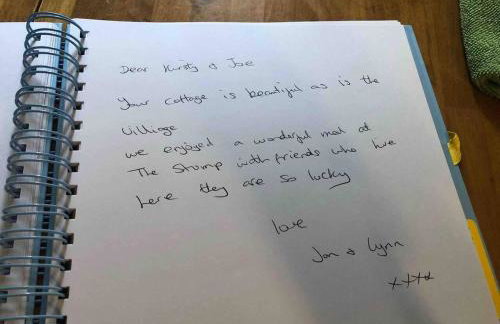 Dear Kirsty & Joe
Your cottage is beautiful as is the
Villiage
we enjoyed a wonderful meal at
The Stump with friends who live
here they are so lucky
love
Jon & Lynn
xxxx